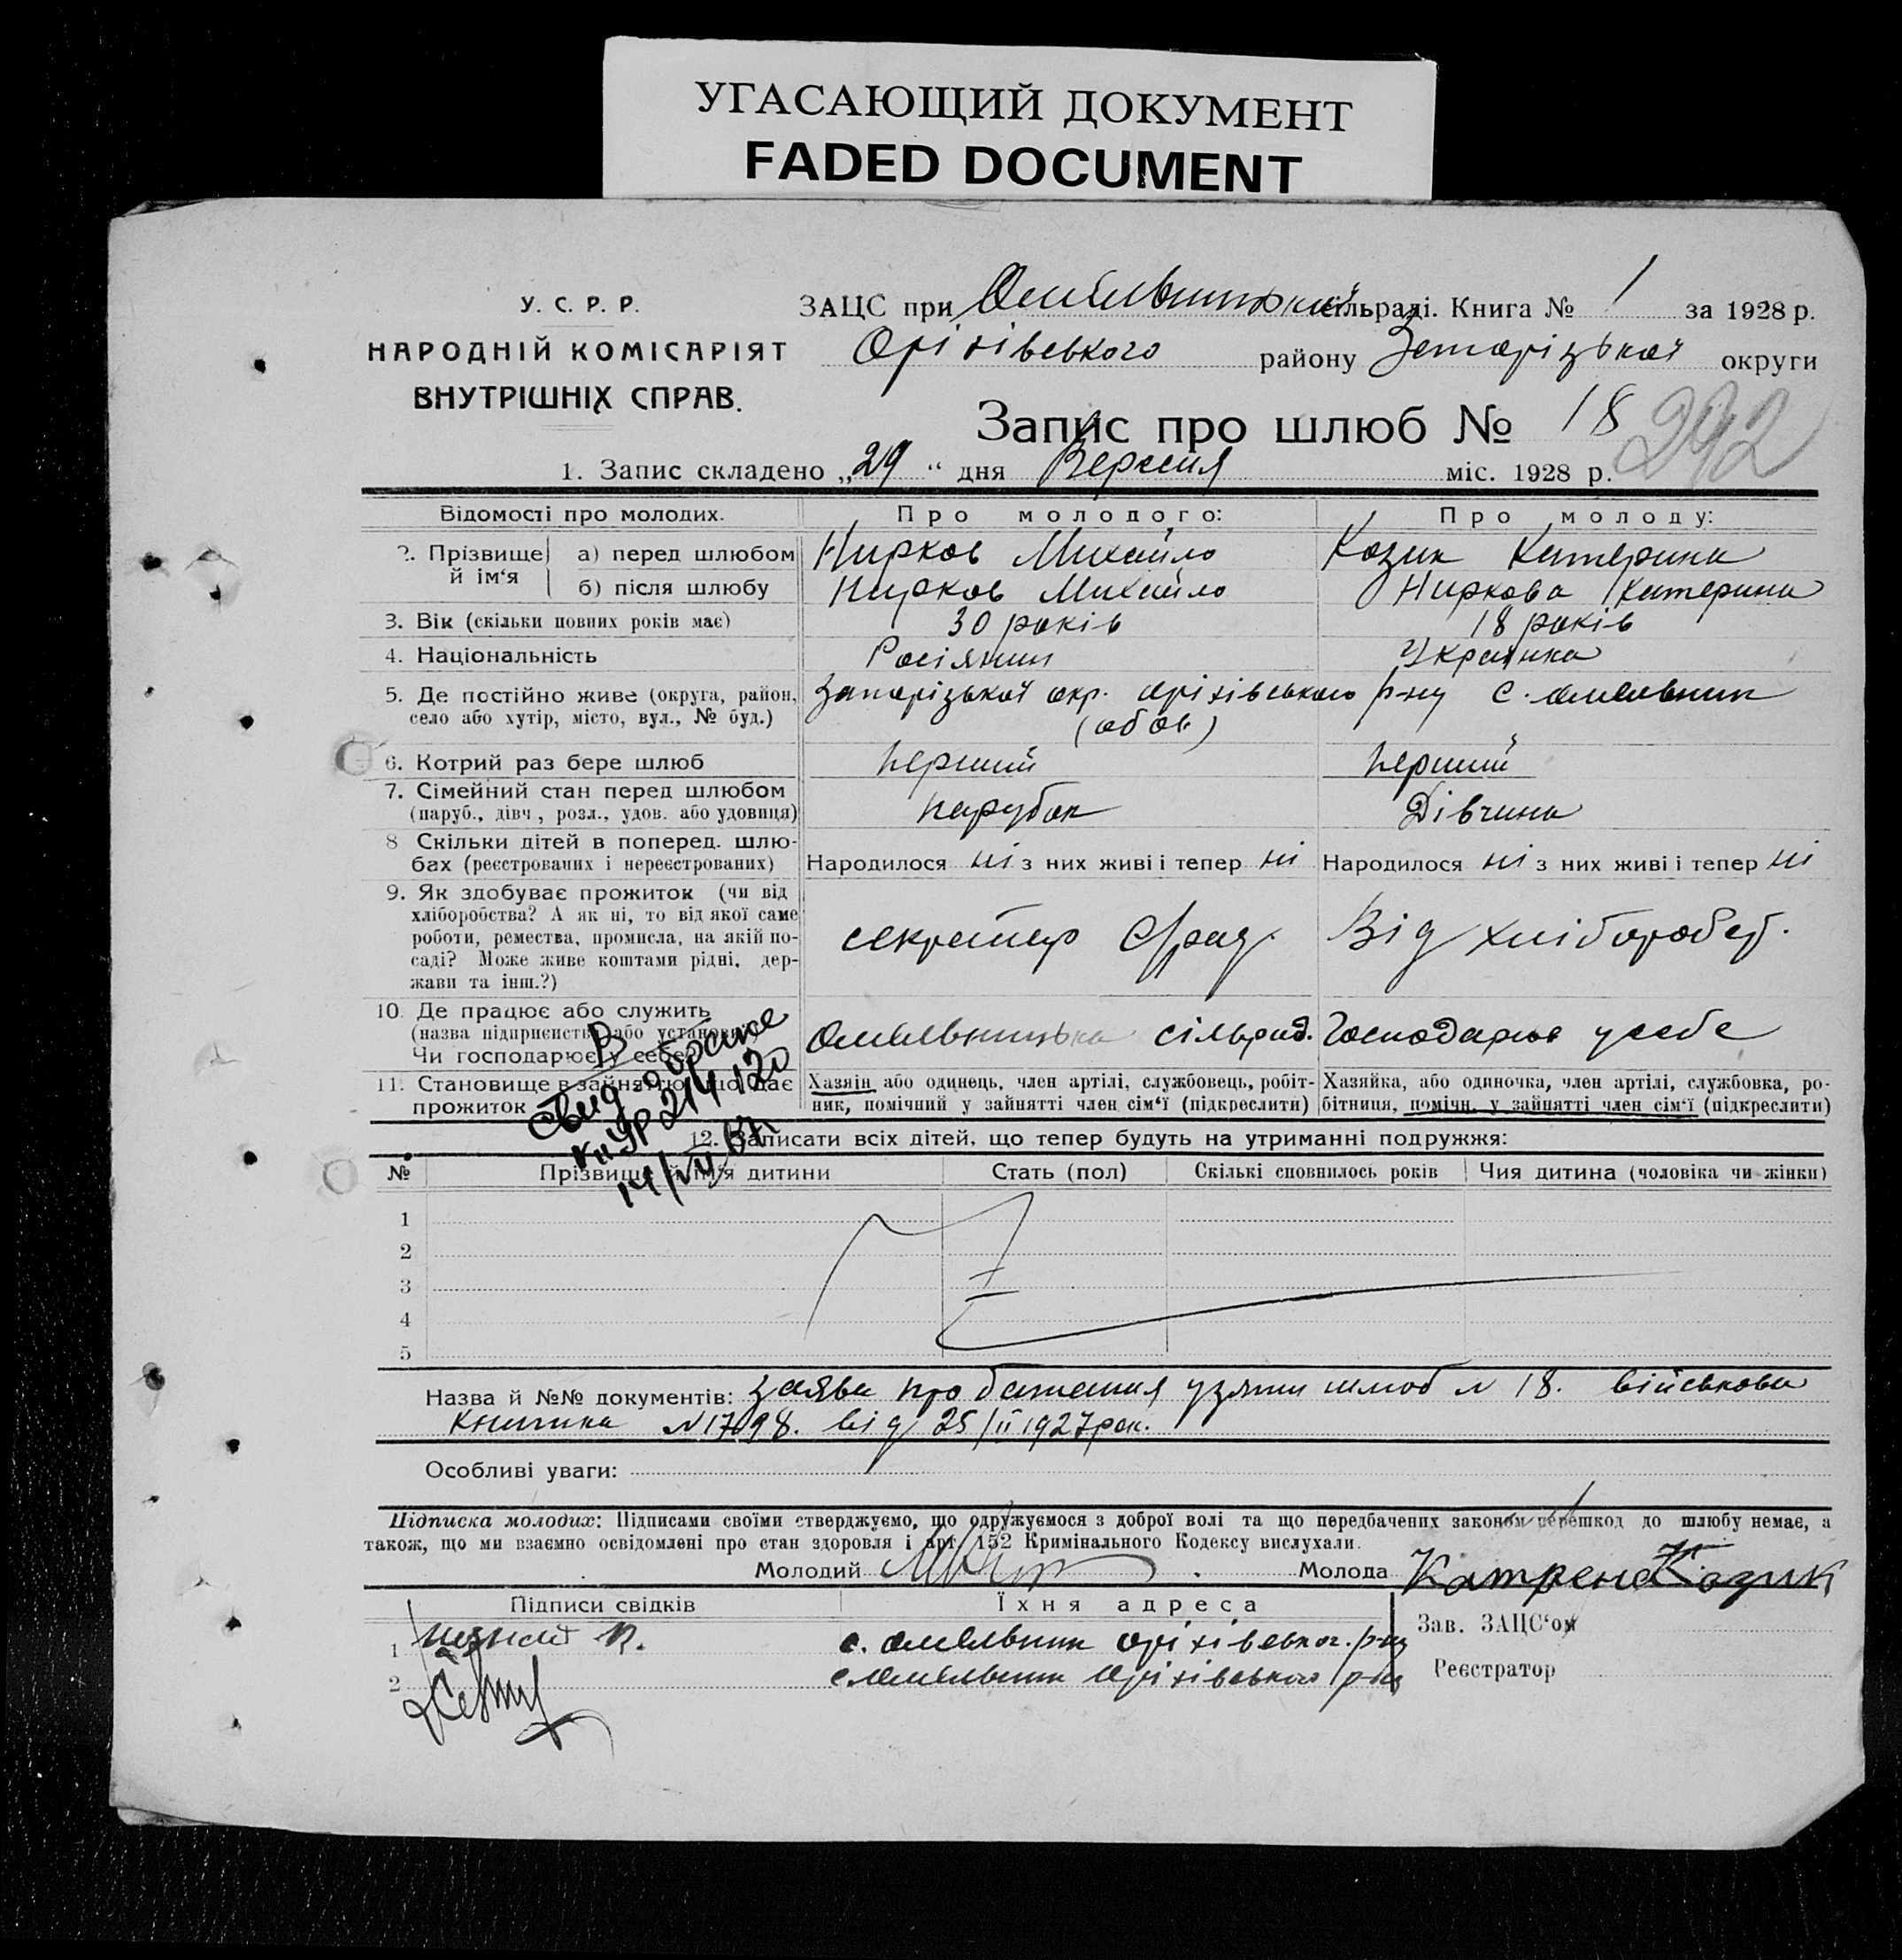 УГАСАЮЩИЙ ДОКУМЕНТ
FADED DOCUMENT
У. С. Р. Р.
НАРОДНІЙ КОМІСАРІЯТ
ВНУТРІШНІХ СПРАВ.
ЗАЦС при Омельницькій сільраді. Книга № 1 за 1928 р.
Оріхівського району Запорізької округи
Запис про шлюб № 18
292
1. Запис складено „29“ дня Вересня міс. 1928 р.
Відомості про молодих. Про молодого: Про молоду:
2. Прізвище й ім‘я а) перед шлюбом Нирков Михайло Козик Катерина
б) після шлюбу Нирков Михайло Ниркова Катерина
3. Вік (скільки повних років має) 30 років 18 років
4. Національність Росіянин Українка
5. Де постійно живе (округа, район, Запорізької окр. Оріхівського р-ну с. Омельник
село або хутір, місто, вул., № буд.) (обоє)
6. Котрий раз бере шлюб перший перший
7. Сімейний стан перед шлюбом
(паруб., дівч., розл., удов. або удовиця) парубок Дівчина
8 Скільки дітей в поперед. шлю-
бах (реєстрованих і нереєстрованих) Народилося ні з них живі і тепер ні Народилося ні з них живі і тепер ні
9. Як здобуває прожиток (чи від
хліборобства? А як ні, то від якої саме
роботи, ремества, промисла, на якій по-
саді? Може живе коштами рідні, дер-
жави та інш.?)
секретар с/рад. Від хлібороб.
10. Де працює або служить
(назва підприємства або установи)
Чи господарює у себе?
Омельницька сільрад. Господарює у себе
11. Становище в зайнятю, що дає
прожиток
Хазяін або одинець, член артілі, службовець, робіт-
ник, помічний у зайнятті член сім‘ї (підкреслити)
Хазяйка, або одиночка, член артілі, службовка, ро-
бітниця, помічн. у зайнятті член сім‘ї (підкреслити)
В
12. Записати всіх дітей, що тепер будуть на утриманні подружжя:
№ Прізвище й ім‘я дитини Стать (пол) Скількі сповнилось років Чия дитина (чоловіка чи жінки)
1
2
3
4
5
Назва й №№ документів: Заява про бажання узяти шлюб № 18. військова
книжка № 17098. від 25/II 1927 рок.
Особливі уваги:
Підписка молодих: Підписами своїми стверджуємо, що одружуємося з доброї волі та що передбачених законом перешкод до шлюбу немає, а
також, що ми взаємно освідомлені про стан здоровля і арт. 152 Кримінального Кодексу вислухали.
Молодий Молода Катрена Козик
Підписи свідків Їхня адреса
Зав. ЗАЦС‘ом
1 с. Омельник Оріхівськог. р-ну
Реєстратор
2 с. Омельник Оріхівського р-ну